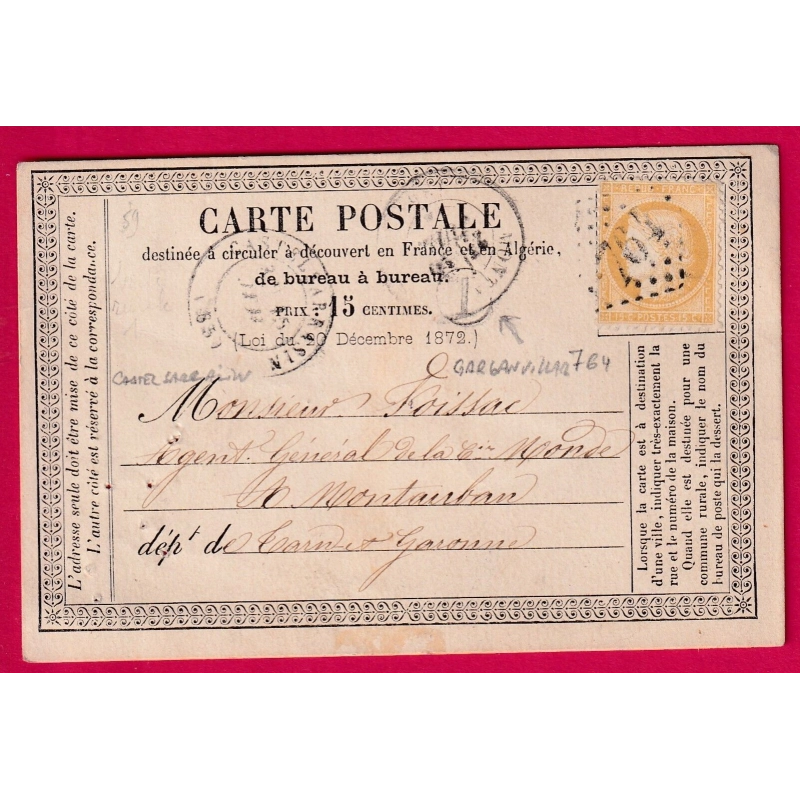 CARTE POSTALE
destinée à circuler à découvert en France et en Algérie,
de bureau à bureau.
PRIX: 15 CENTIMES.
(Loi du 20 Décembre 1872.)
L'adresse seule doit être mise de ce côté de la carte.
L'autre côté est réservé à la correspondance.
59
REPUB FRANC
15 C POSTES 15 C
764
L
CASTELSARRASIN
GARGANVILLAR 764
Monsieur Foissac
Agent Général de la Cie Le Monde
A Montauban
dépt de Tarn et Garonne
Lorsque la carte est à destination
d'une ville, indiquer très-exactement la
rue et le numéro de la maison.
Quand elle est destinée pour une
commune rurale, indiquer le nom du
bureau de poste qui la dessert.